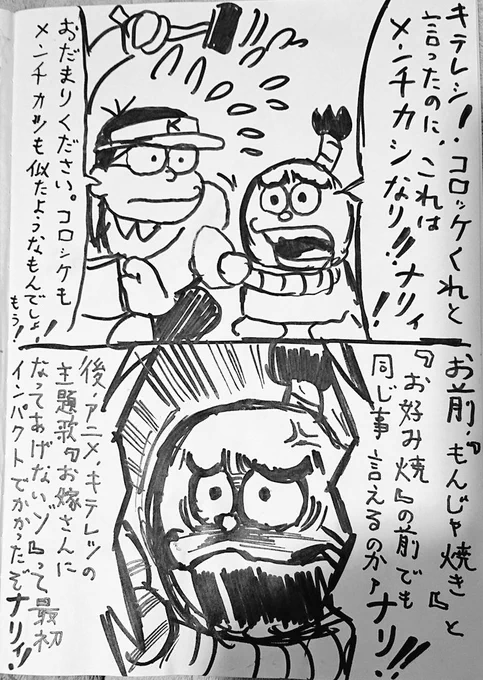 キテレツ!コロッケくれと
言ったのに、これは
メンチカツなり!!ナリィ!
K
おだまりください。コロッケも
メンチカツも似たようなもんでしょ!
もう!
お前、『もんじゃ焼き』と
『お好み焼』の前でも
同じ事言えるのかァナリ!!
後、アニメ、キテレツの
主題歌『お嫁さんに
なってあげないゾ』って最初
インパクトでかかったぞナリィ!!